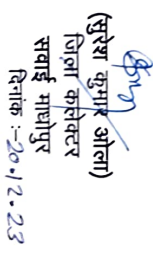 (सुरेश कुमार ओला)
जिला कलेक्टर
सवाई माधोपुर
दिनांक :-20.12.23